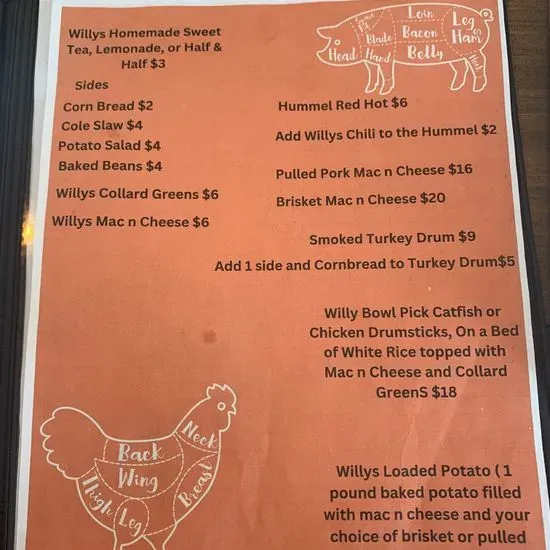 Willys Homemade Sweet
Tea, Lemonade, or Half &
Half $3
Sides
Corn Bread $2
Cole Slaw $4
Potato Salad $4
Baked Beans $4
Willys Collard Greens $6
Willys Mac n Cheese $6
Head
Blade
Hand
Loin
Bacon
Belly
Leg
or
Ham
Hummel Red Hot $6
Add Willys Chili to the Hummel $2
Pulled Pork Mac n Cheese $16
Brisket Mac n Cheese $20
Smoked Turkey Drum $9
Add 1 side and Cornbread to Turkey Drum$5
Willy Bowl Pick Catfish or
Chicken Drumsticks, On a Bed
of White Rice topped with
Mac n Cheese and Collard
GreenS $18
Neck
Back
Wing
Breast
Thigh
Leg
Willys Loaded Potato ( 1
pound baked potato filled
with mac n cheese and your
choice of brisket or pulled